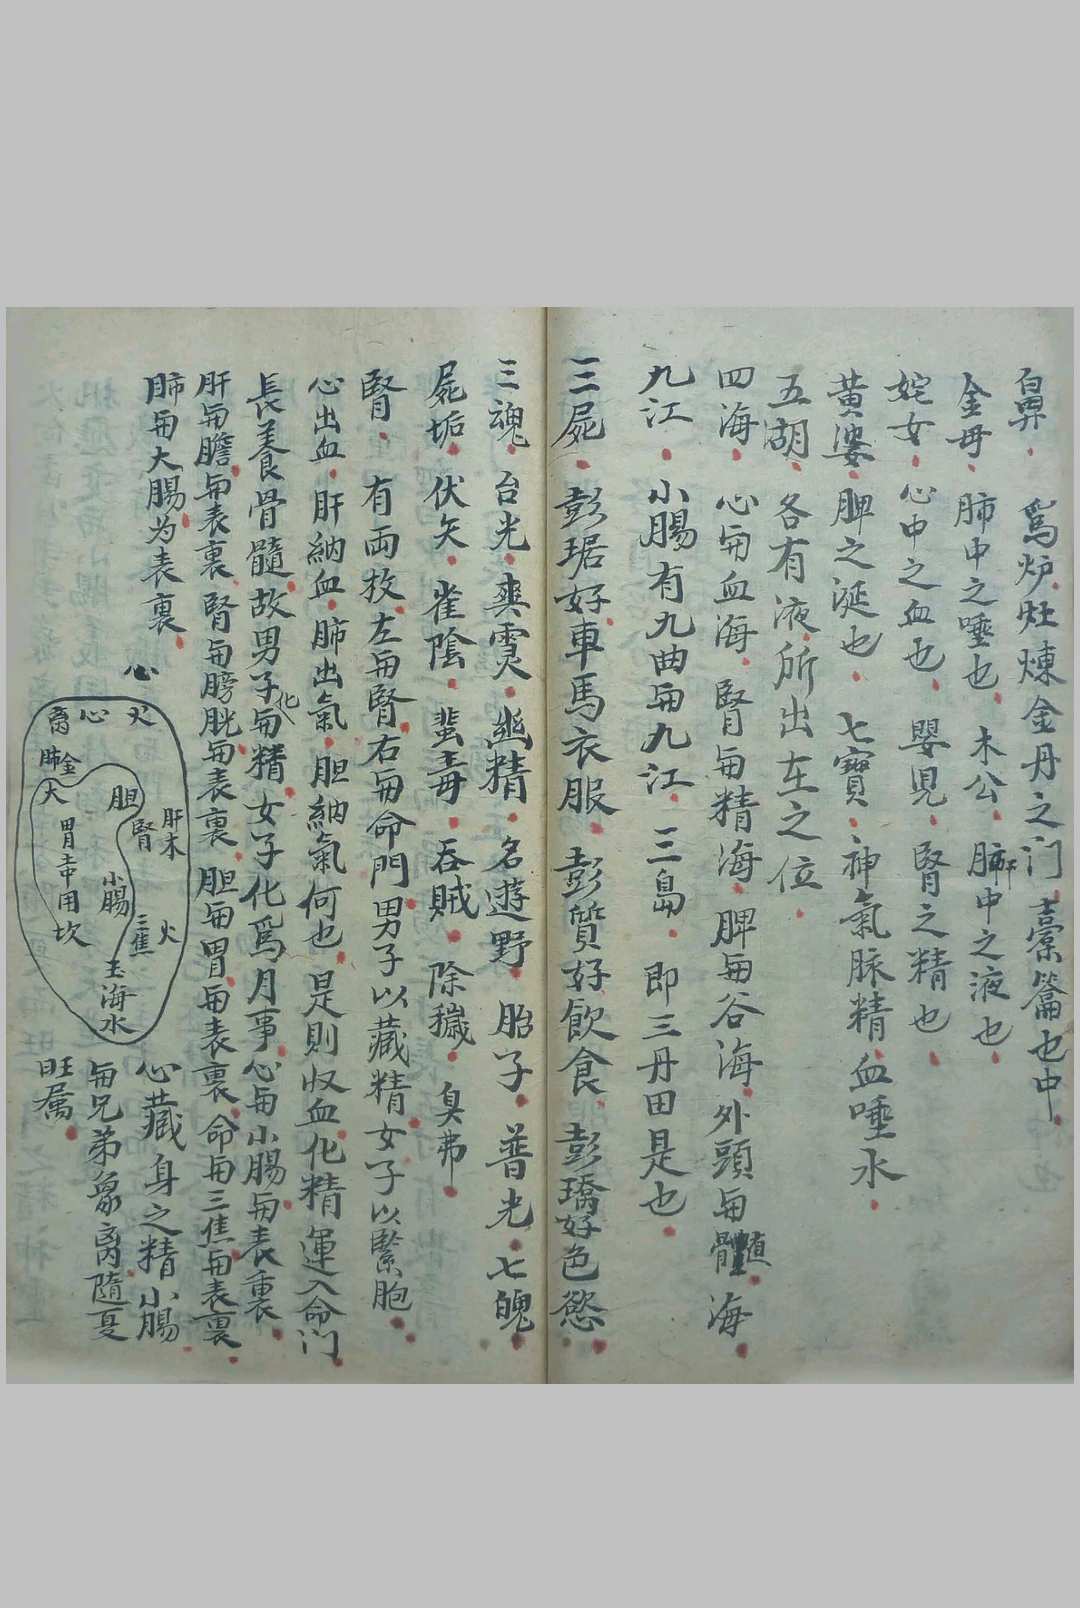 鼻 為炉灶煉金丹之门橐籥也中
金母 肺中之唾也 木公 肺肝中之液也
姹女 心中之血也 嬰児 腎之精也
黄婆 脾之涎也 七寶 神氣脉精血唾水
五湖 各有液所出在之位
四海 心为血海 腎为精海 脾为谷海 外頭为髓海
九江 小腸有九曲为九江 三島 即三丹田是也
三屍 彭琚好車馬衣服 彭質好飲食 彭璚好色慾
三魂 台光 爽霊 幽精 名遊野 胎子 普光 七魄
屍垢 伏矢 雀陰 蜚毒 吞賊 除穢 臭弗
腎 有両枚左为腎右为命門男子以藏精女子以緊胞
心出血 肝納血 肺出氣 胆納氣何也 是則収血化精運入命门
長養骨髓故男子化为精 女子化爲月事 心与小腸为表裏
肝与膽为表裏 腎与膀胱为表裏 胆与胃为表裏 命与三焦为表裏
肺与大腸为表裏
心
火
心
离
肺金
大
胆
肝木
腎
胃
小腸
三焦
火
用坎
玉海水
心藏身之精小腸
为兄弟象离隨夏
旺属